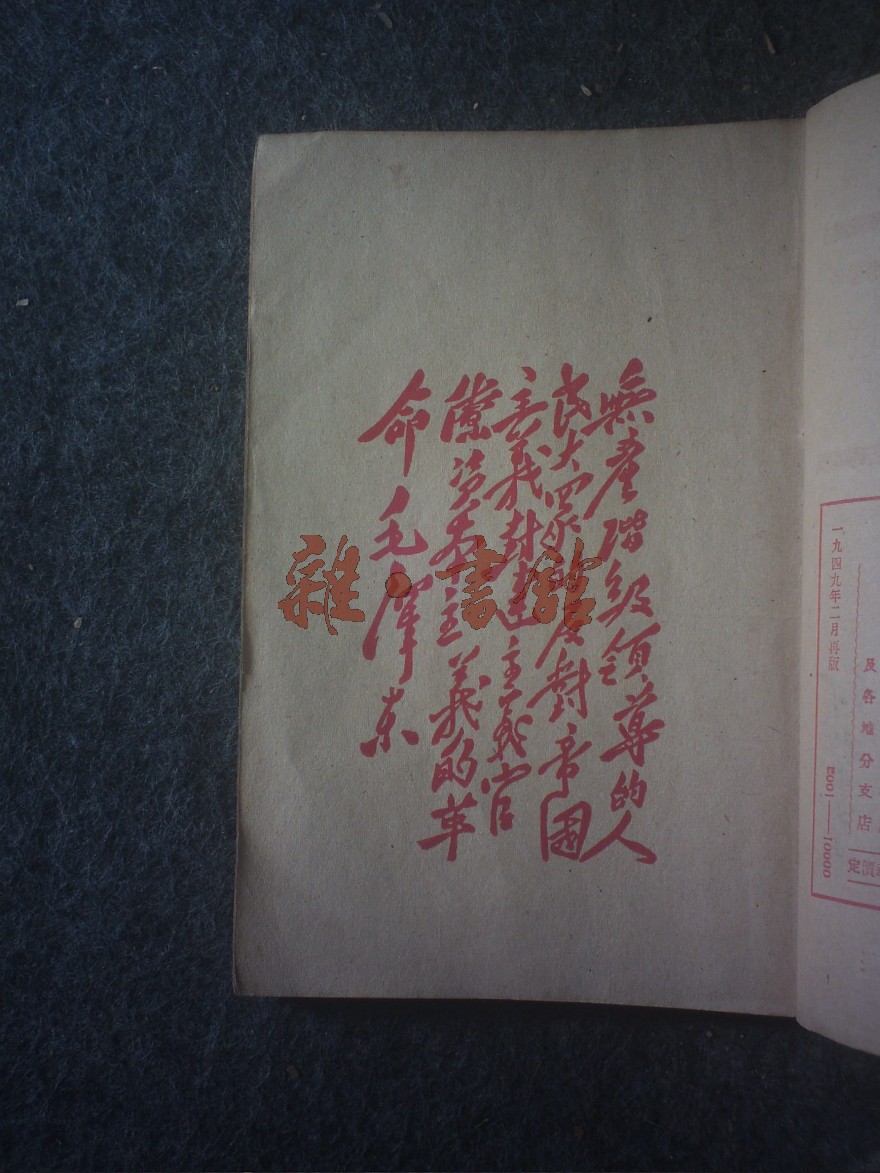 及各地分支店
定價
一九四九年二月再版 5001——10000
無產階級領導的人
民大眾的反對帝國
主義封建主義官
僚資本主義的革
命毛澤東
雜·書館